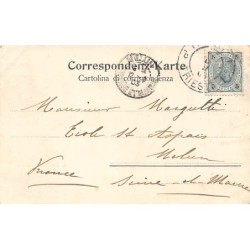 Correspondenz-Karte
Cartolina di corrispondenza
Monsieur Margotti
Ecole St Aspais
Melun
France
Seine-et-Marne